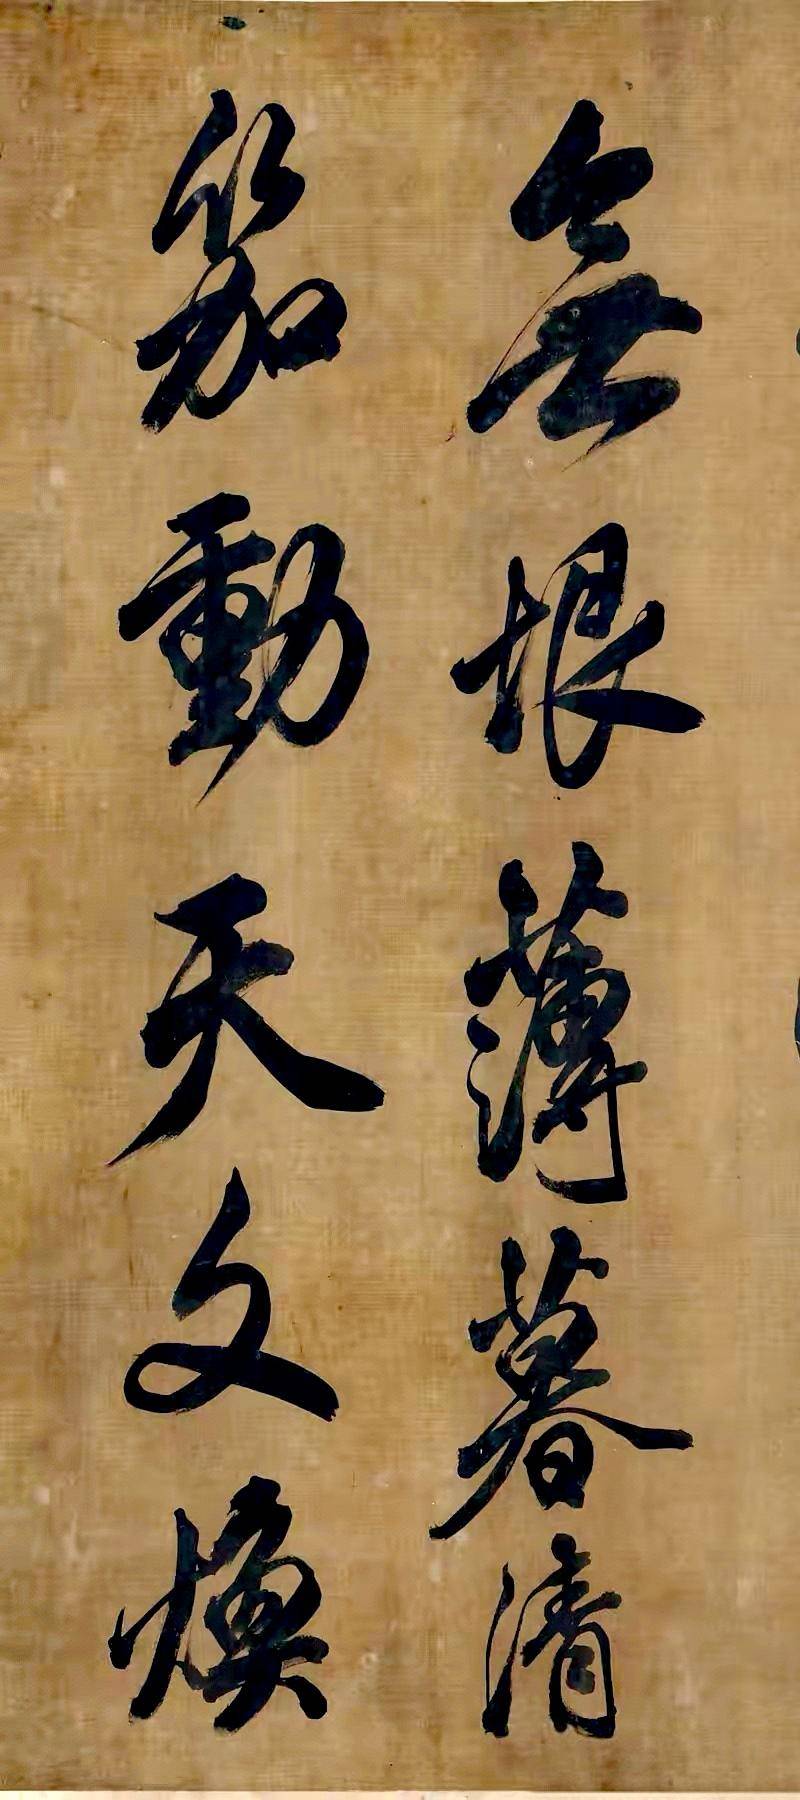 無垠薄暮清
笳動天文煥